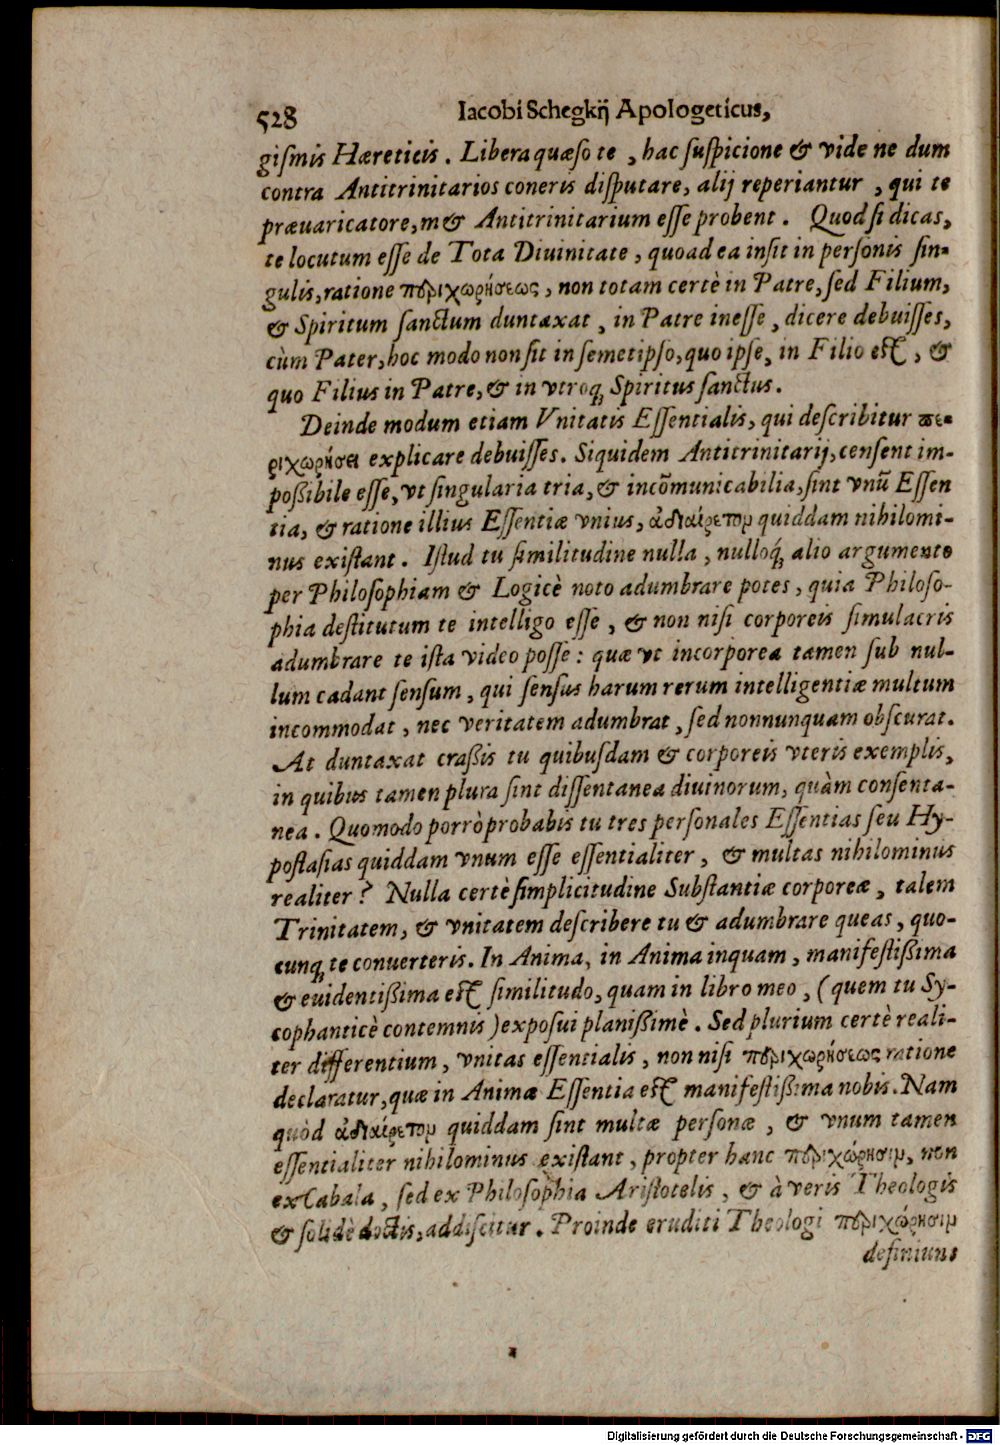 528 Iacobi Schegkij Apologeticus,
giſmis Hæreticis. Libera quæſo te, hac ſuſpicione & vide ne dum
contra Antitrinitarios coneris diſputare, alij reperiantur, qui te
præuaricatore,m& Antitrinitarium eſſe probent. Quod ſi dicas,
te locutum eſſe de Tota Diuinitate, quoad ea inſit in perſonis ſin-
gulis, ratione περιχωρήσεως, non totam certè in Patre, ſed Filium,
& Spiritum ſanctum duntaxat, in Patre ineſſe, dicere debuiſſes,
cùm Pater, hoc modo non ſit in ſemetipſo, quo ipſe, in Filio eſt, &
quo Filius in Patre, & in vtroq; Spiritus ſanctus.
Deinde modum etiam Vnitatis Eſſentialis, qui deſcribitur πε-
ριχωρήσει explicare debuiſſes. Siquidem Antitrinitarij, cenſent im-
poßibile eſſe, vt ſingularia tria, & incōmunicabilia, ſint vnū Eſſen
tia, & ratione illius Eſſentiæ vnius, ἀδιαίρετον quiddam nihilomi-
nus exiſtant. Iſtud tu ſimilitudine nulla, nulloq́; alio argumento
per Philoſophiam & Logicè noto adumbrare potes, quia Philoſo-
phia deſtitutum te intelligo eſſe, & non niſi corporeis ſimulacris
adumbrare te iſta video poſſe: quæ vt incorporea tamen ſub nul-
lum cadant ſenſum, qui ſenſus harum rerum intelligentiæ multum
incommodat, nec veritatem adumbrat, ſed nonnunquam obſcurat.
At duntaxat craßis tu quibuſdam & corporeis vteris exemplis,
in quibus tamen plura ſint diſſentanea diuinorum, quàm conſenta-
nea. Quomodo porrò probabis tu tres perſonales Eſſentias ſeu Hy-
poſtaſias quiddam vnum eſſe eſſentialiter, & multas nihilominus
realiter? Nulla certè ſimplicitudine Subſtantiæ corporeæ, talem
Trinitatem, & vnitatem deſcribere tu & adumbrare queas, quo-
cunq; te conuerteris. In Anima, in Anima inquam, manifeſtißima
& euidentißima eſt ſimilitudo, quam in libro meo, (quem tu Sy-
cophanticè contemnis) expoſui planißimè. Sed plurium certè reali-
ter differentium, vnitas eſſentialis, non niſi περιχωρήσεως ratione
declaratur, quæ in Animæ Eſſentia eſt manifeſtißima nobis. Nam
quòd ἀδιαίρετον quiddam ſint multæ perſonæ, & vnum tamen
eſſentialiter nihilominus exiſtant, propter hanc περιχώρησιν, non
ex Cabala, ſed ex Philoſophia Ariſtotelis, & à veris Theologis
& ſolidè doctis, addiſcitur. Proinde eruditi Theologi περιχώρησιν
definiunt
Digitalisierung gefördert durch die Deutsche Forschungsgemeinschaft - DFG